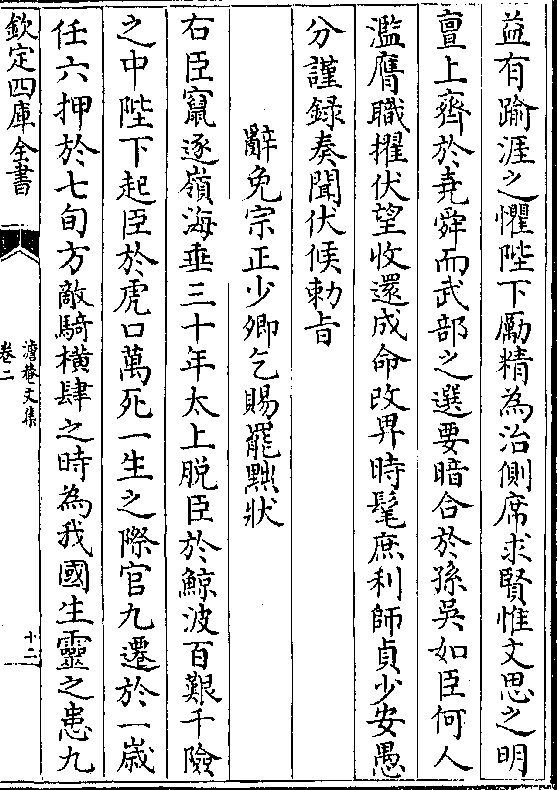 益有踰涯之懼陛下勵精為治側席求賢惟文思之明
亶上齊於堯舜而武部之選要暗合於孫吳如臣何人
濫膺職擢伏望收還成命改畀時髦庶利師貞少安愚
分謹録奏聞伏候勅旨
辭免宗正少卿乞賜罷黜狀
右臣竄逐嶺海垂三十年太上脱臣於鯨波百艱千險
之中陛下起臣於虎口萬死一生之際官九遷於一歲
任六押於七旬方敵騎橫肆之時為我國生靈之患九
欽定四庫全書
澹菴文集
卷二
十二